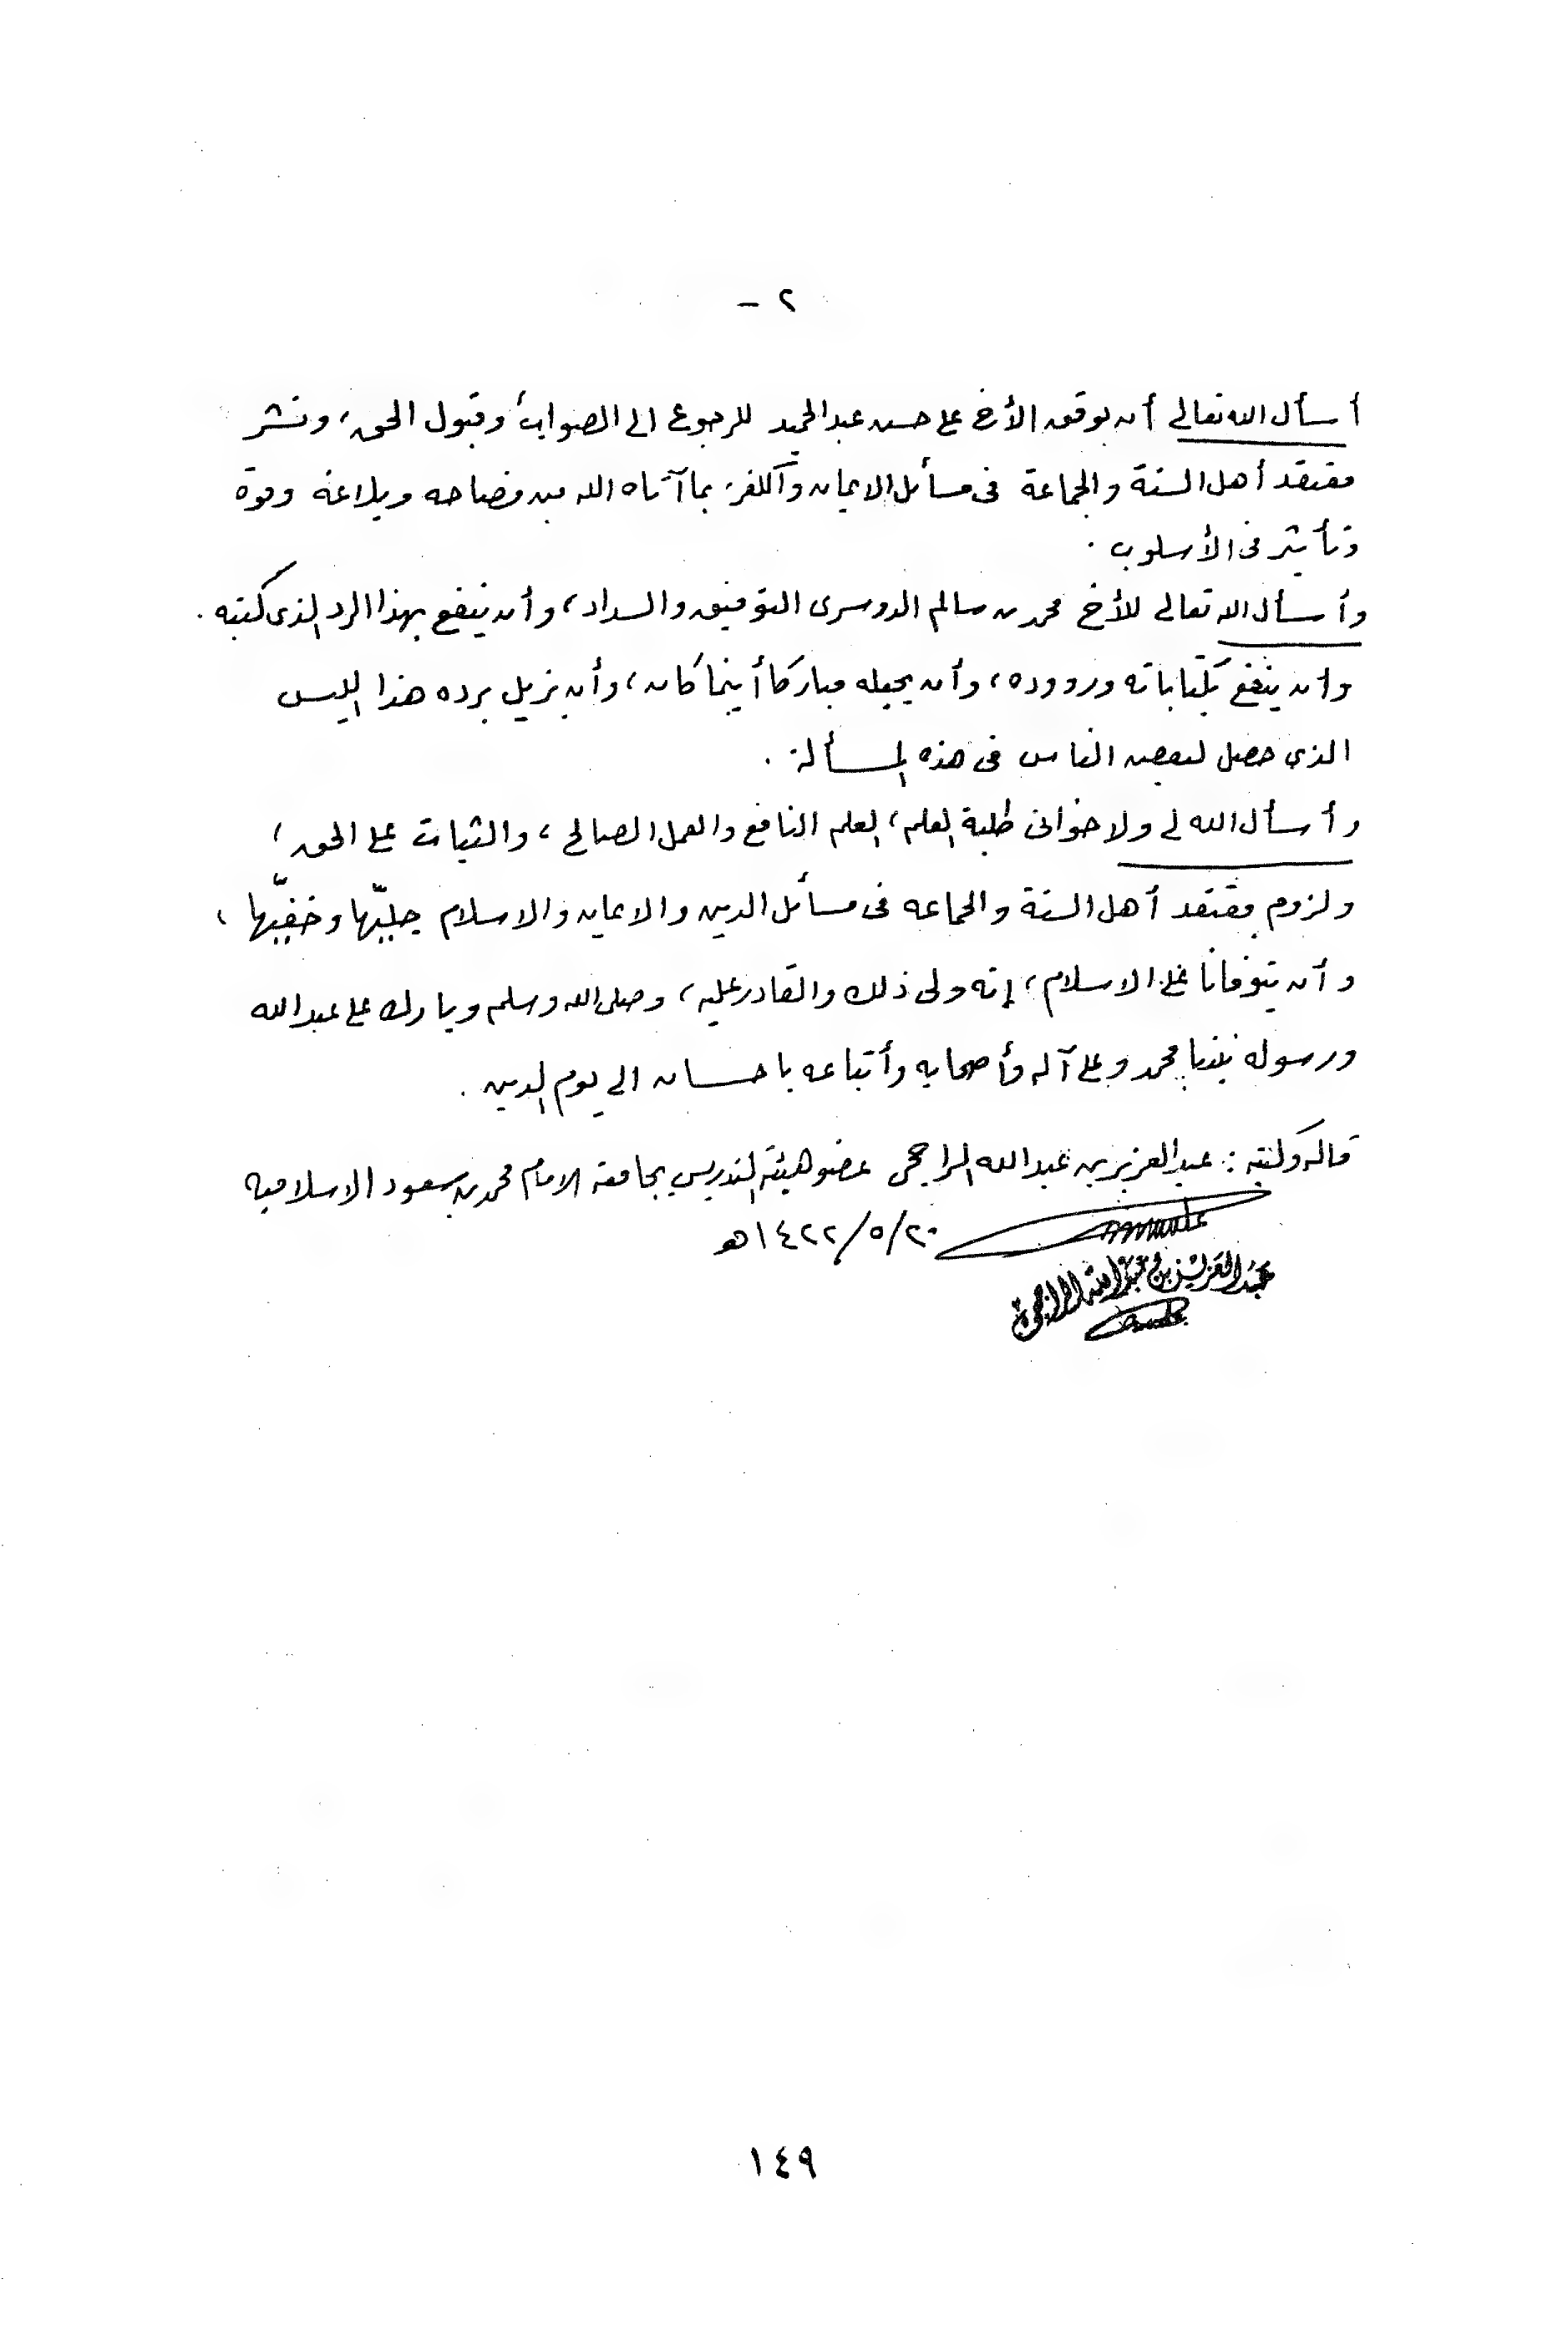 ٢ -
أسأل الله تعالى أن يوفق الأخ علي حسن عبدالحميد للرجوع الى الصواب، وقبول الحق، ونشر
معتقد أهل السنة والجماعة فى مسائل الايمان والكفر، بما آتاه الله من فصاحه وبلاغة وقوة
وتأثير فى الأسلوب .
وأسأل الله تعالى للأخ محمد بن سالم الدوسرى التوفيق والسداد، وأن ينفع بهذا الرد الذى كتبه .
وأن ينفع بكتاباته وردوده، وأن يجعله مباركا أينما كان، وأن يزيل برده هذا اللبس
الذي حصل لبعض الناس فى هذه المسألة .
وأسأل الله لى ولاخوانى طلبة العلم، العلم النافع والعمل الصالح، والثبات على الحق،
ولزوم معتقد أهل السنة والجماعه فى مسائل الدين والايمان والاسلام جليّها وخفيّها،
وأن يتوفانا على الاسلام، إنه ولى ذلك والقادر عليه، وصلى الله وسلم وبارك على عبدالله
ورسوله نبينا محمد وعلى آله وأصحابه وأتباعه باحسان الى يوم الدين .
قاله وكتبه : عبدالعزيز بن عبدالله الراجحى عضو هيئة التدريس بجامعة الامام محمد بن سعود الاسلاميه
٢٠/٥/١٤٢٢هـ
عبدالعزيز بن عبدالله الراجحي
١٤٩